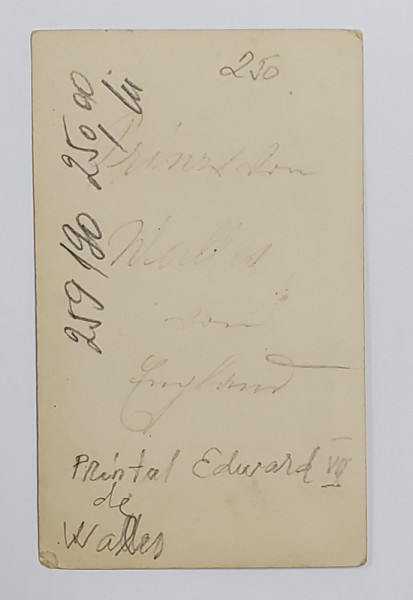 250
259/90 250,00 lei
Prinz von
Walles
von
England
Prințul Edward VII
de
Walles